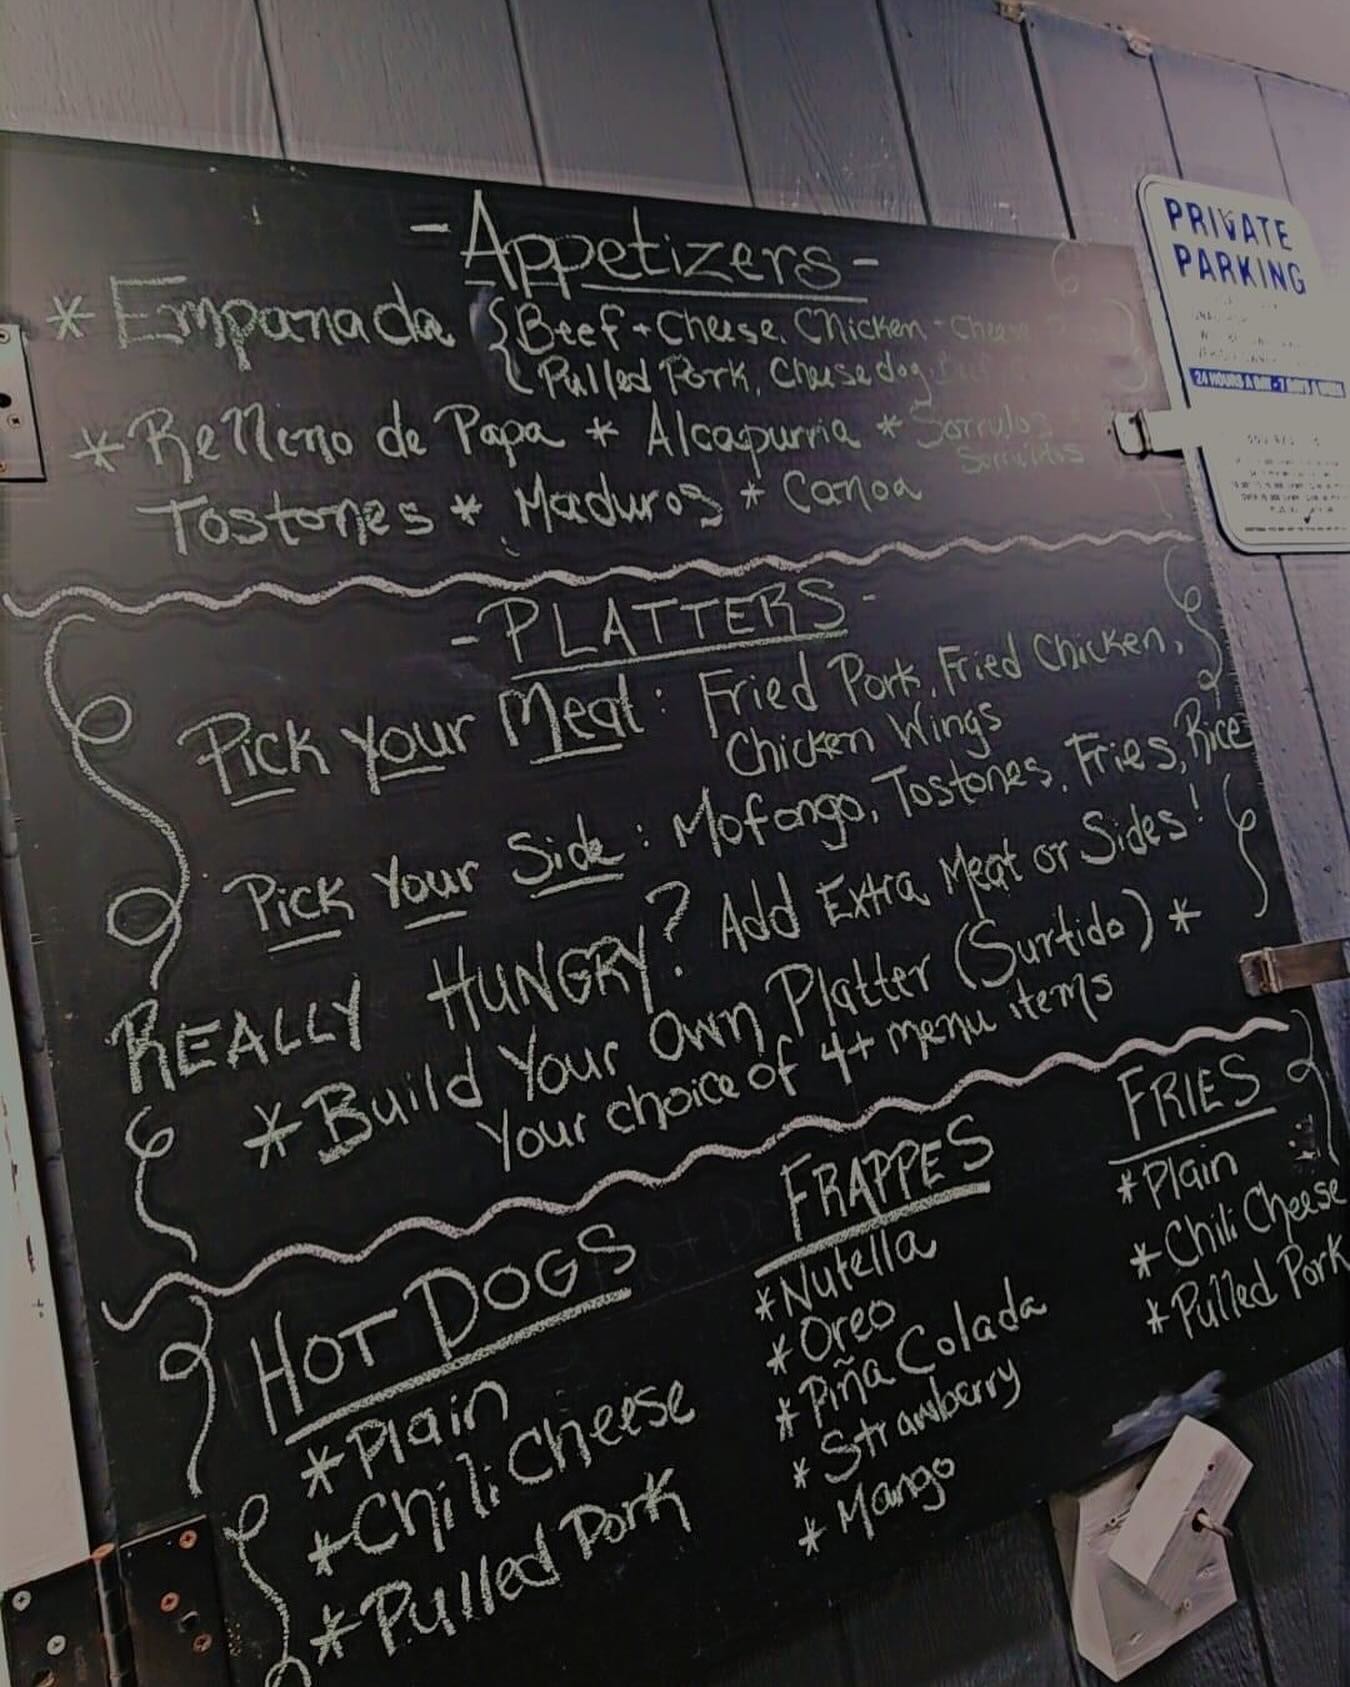 - Appetizers -
* Empanada { Beef + Cheese, Chicken + Cheese
Pulled Pork, Cheesedog,
* Relleno de Papa * Alcapurria * Sorrulos
Sorrullitos
Tostones * Maduros * Canoa
- PLATTERS -
Pick your Meat: Fried Pork, Fried Chicken,
Chicken Wings
Pick Your Side: Mofongo, Tostones, Fries, Rice
REALLY HUNGRY? Add Extra Meat or Sides!
* Build Your Own Platter (Surtido) *
Your choice of 4+ menu items
HOT DOGS
* Plain
* Chili Cheese
* Pulled Pork
FRAPPES
* Nutella
* Oreo
* Piña Colada
* Strawberry
* Mango
FRIES
* Plain
* Chili Cheese
* Pulled Pork
PRIVATE
PARKING
24 HOURS A DAY - 7 DAYS A WEEK